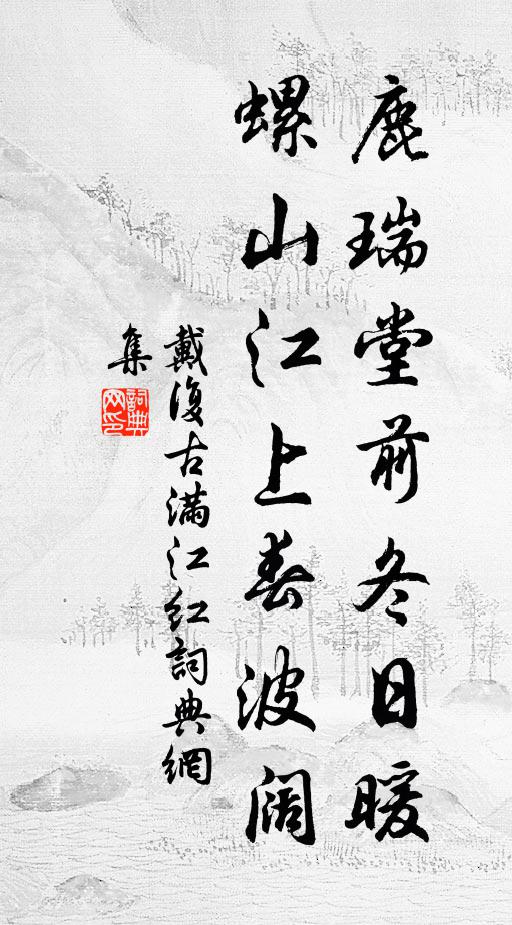 鹿瑞堂前冬日暖
螺山江上春波阔
戴復古满江紅詞典網
集
詞典
网印